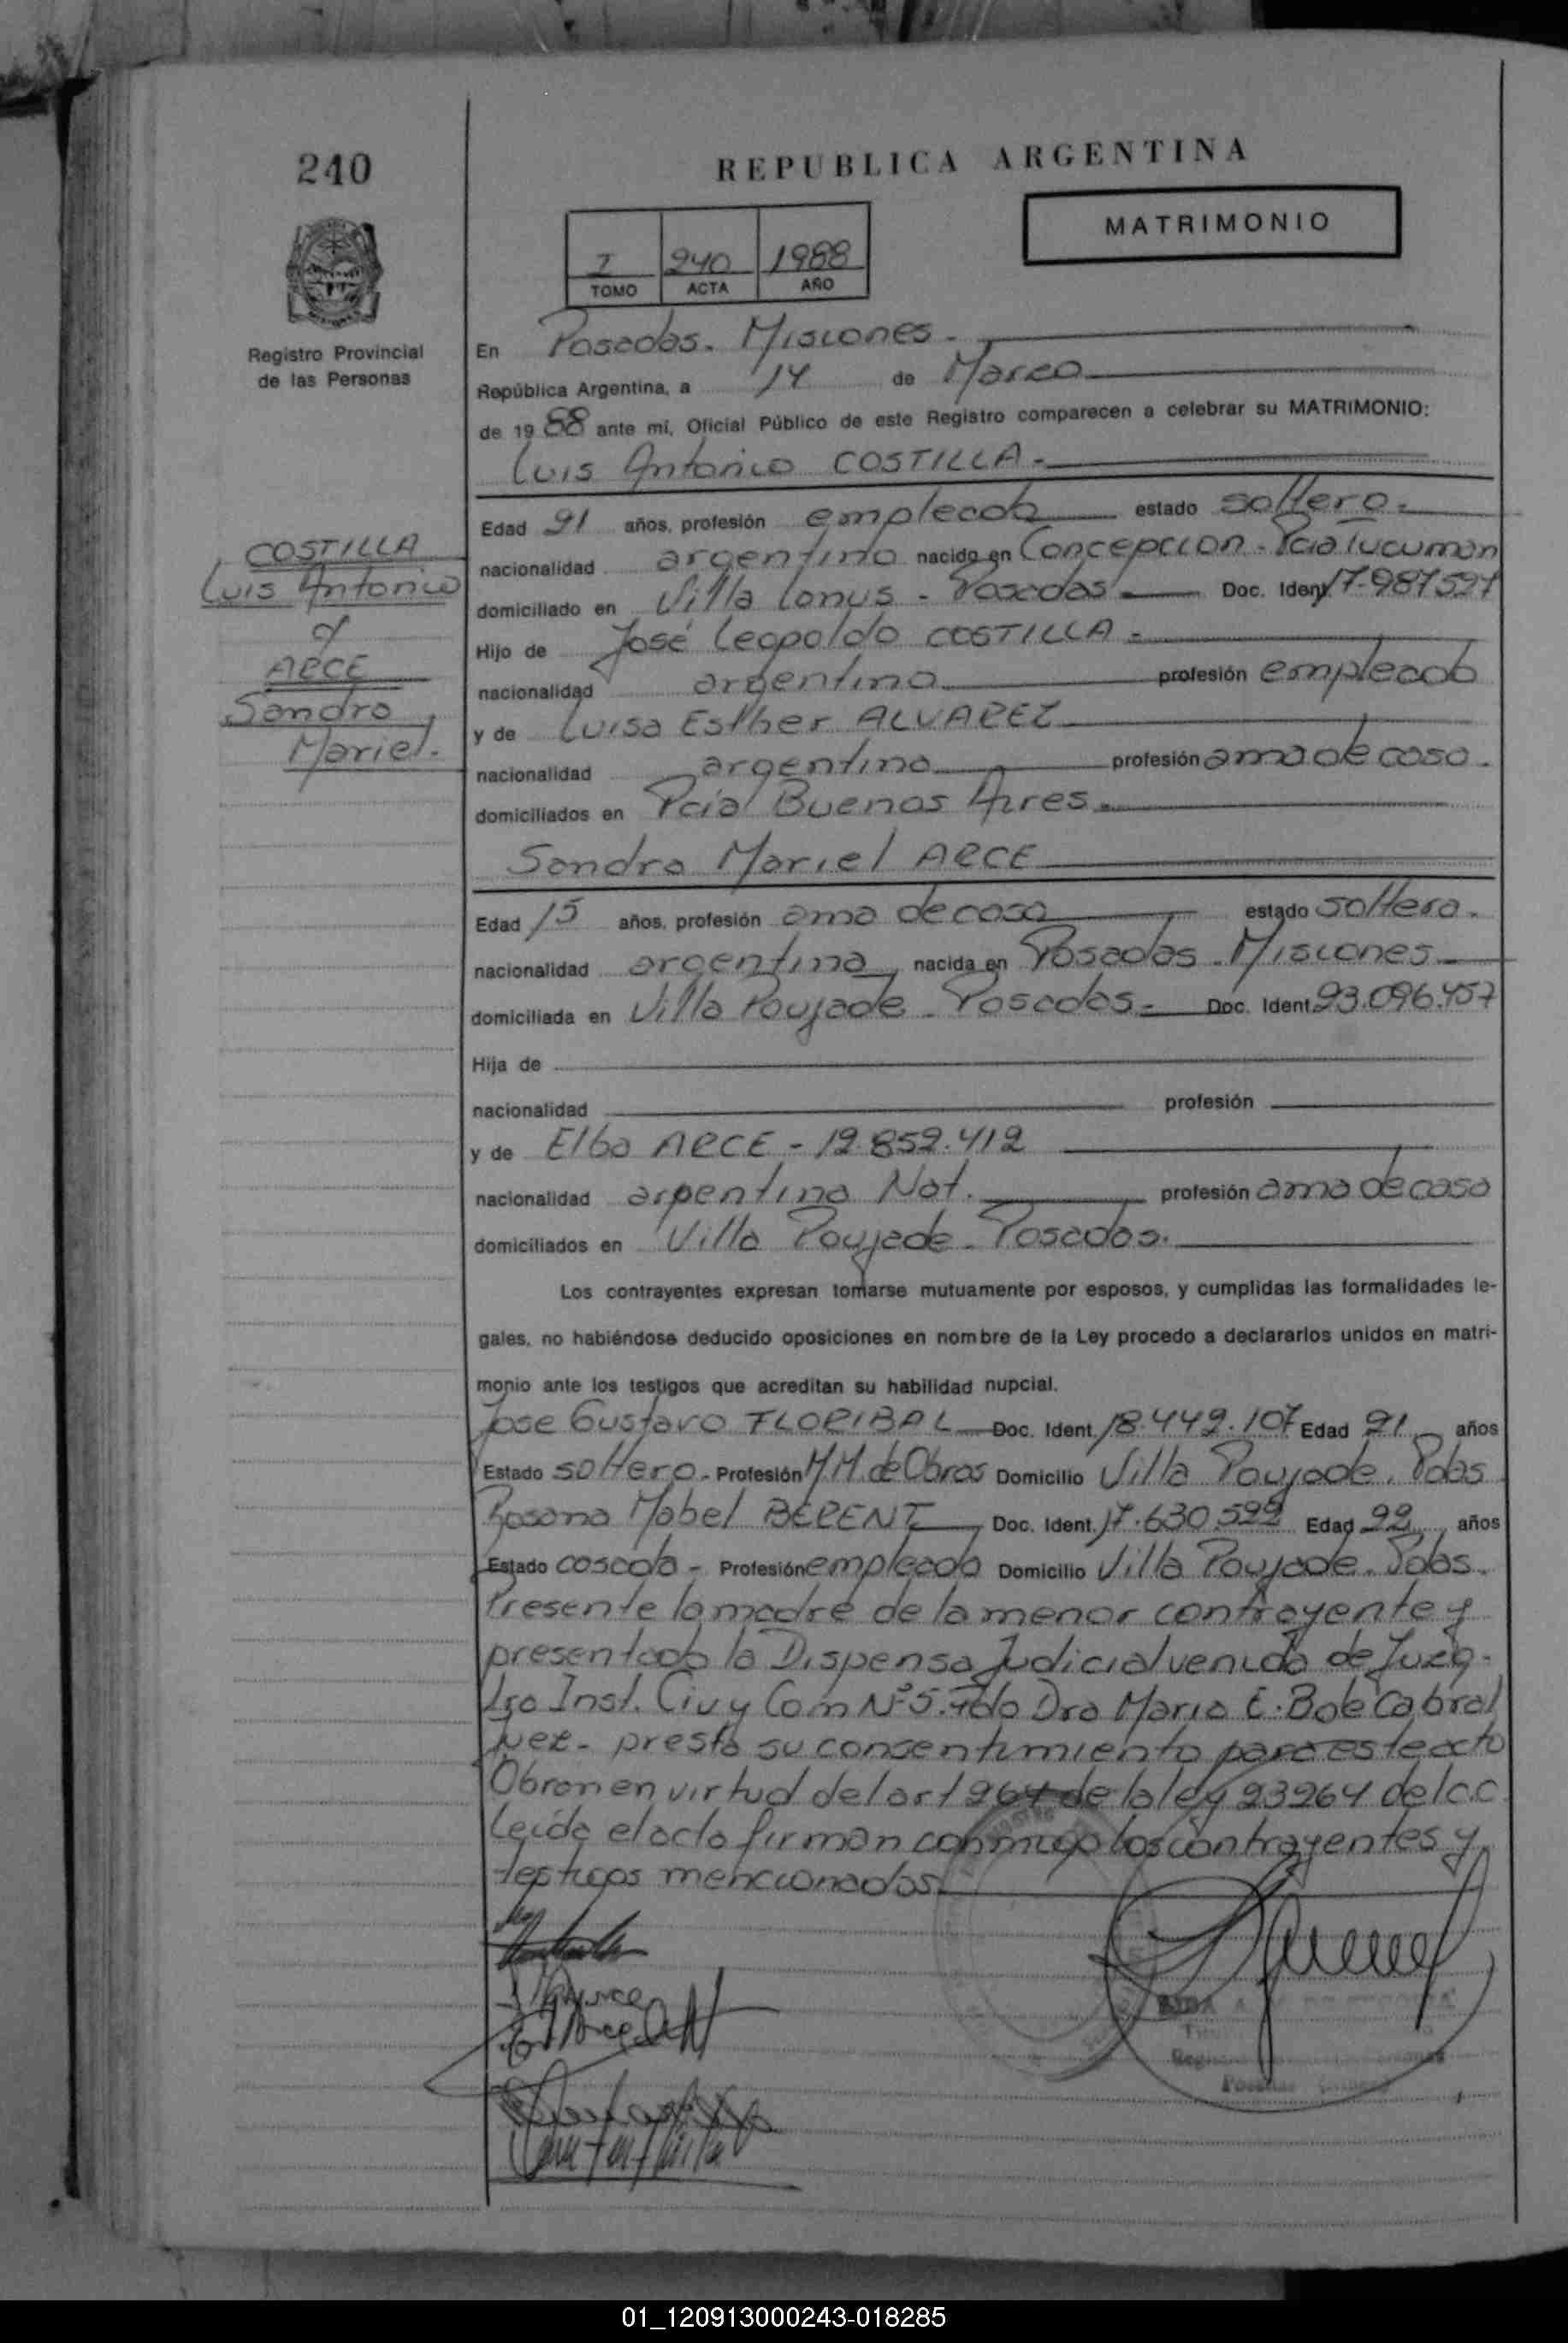 240
REPUBLICA ARGENTINA
MATRIMONIO
I 240 1988
TOMO ACTA AÑO
Registro Provincial
de las Personas
En Posadas. Misiones.
República Argentina, a 14 de Marzo
de 1988 ante mí, Oficial Público de este Registro comparecen a celebrar su MATRIMONIO:
Luis Antonio COSTILLA.
COSTILLA
Luis Antonio
y
ARCE
Sandra
Mariel.
Edad 21 años, profesión empleado estado soltero.
nacionalidad argentino nacido en Concepcion. Pcia Tucuman
domiciliado en Villa Lanus - Posadas Doc. Ident. 17.987597
Hijo de José Leopoldo COSTILLA.
nacionalidad argentino profesión empleado
y de Luisa Esther ALVAREZ
nacionalidad argentina profesión ama de casa.
domiciliados en Pcia Buenos Aires.
Sandra Mariel ARCE
Edad 15 años, profesión ama de casa estado soltera.
nacionalidad argentina nacida en Posadas. Misiones
domiciliada en Villa Poujade. Posadas. Doc. Ident. 23.096.457
Hija de
nacionalidad profesión
y de Elba ARCE - 12.852.412
nacionalidad argentina Nat. profesión ama de casa
domiciliados en Villa Poujade. Posadas.
Los contrayentes expresan tomarse mutuamente por esposos, y cumplidas las formalidades le-
gales, no habiéndose deducido oposiciones en nombre de la Ley procedo a declararlos unidos en matri-
monio ante los testigos que acreditan su habilidad nupcial.
Jose Gustavo FLORIBAL Doc. Ident. 18.449.107 Edad 21 años
Estado soltero. Profesión M.M. de Obras Domicilio Villa Poujade. Pdas
Rosana Mabel BERENT Doc. Ident. 17.630.522 Edad 22 años
Estado casada - Profesión empleada Domicilio Villa Poujade. Pdas.
Presente la madre de la menor contrayente y
presentado la Dispensa Judicial venida de Juzg.
1ro Inst. Civ y Com Nº 5. Fdo Dra Maria E. Bole Cabral
Juez. presta su consentimiento para este acto
Obran en virtud del art 264 de la ley 23264 del C.C
Leida el acta firman conmigo los contrayentes y
testigos mencionados.
01_120913000243-018285